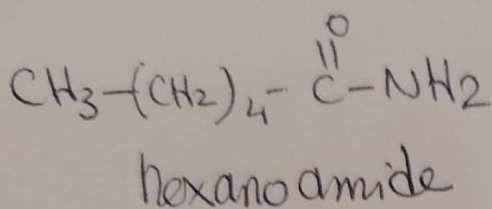 O
||
CH3-(CH2)4-C-NH2
hexanoamide